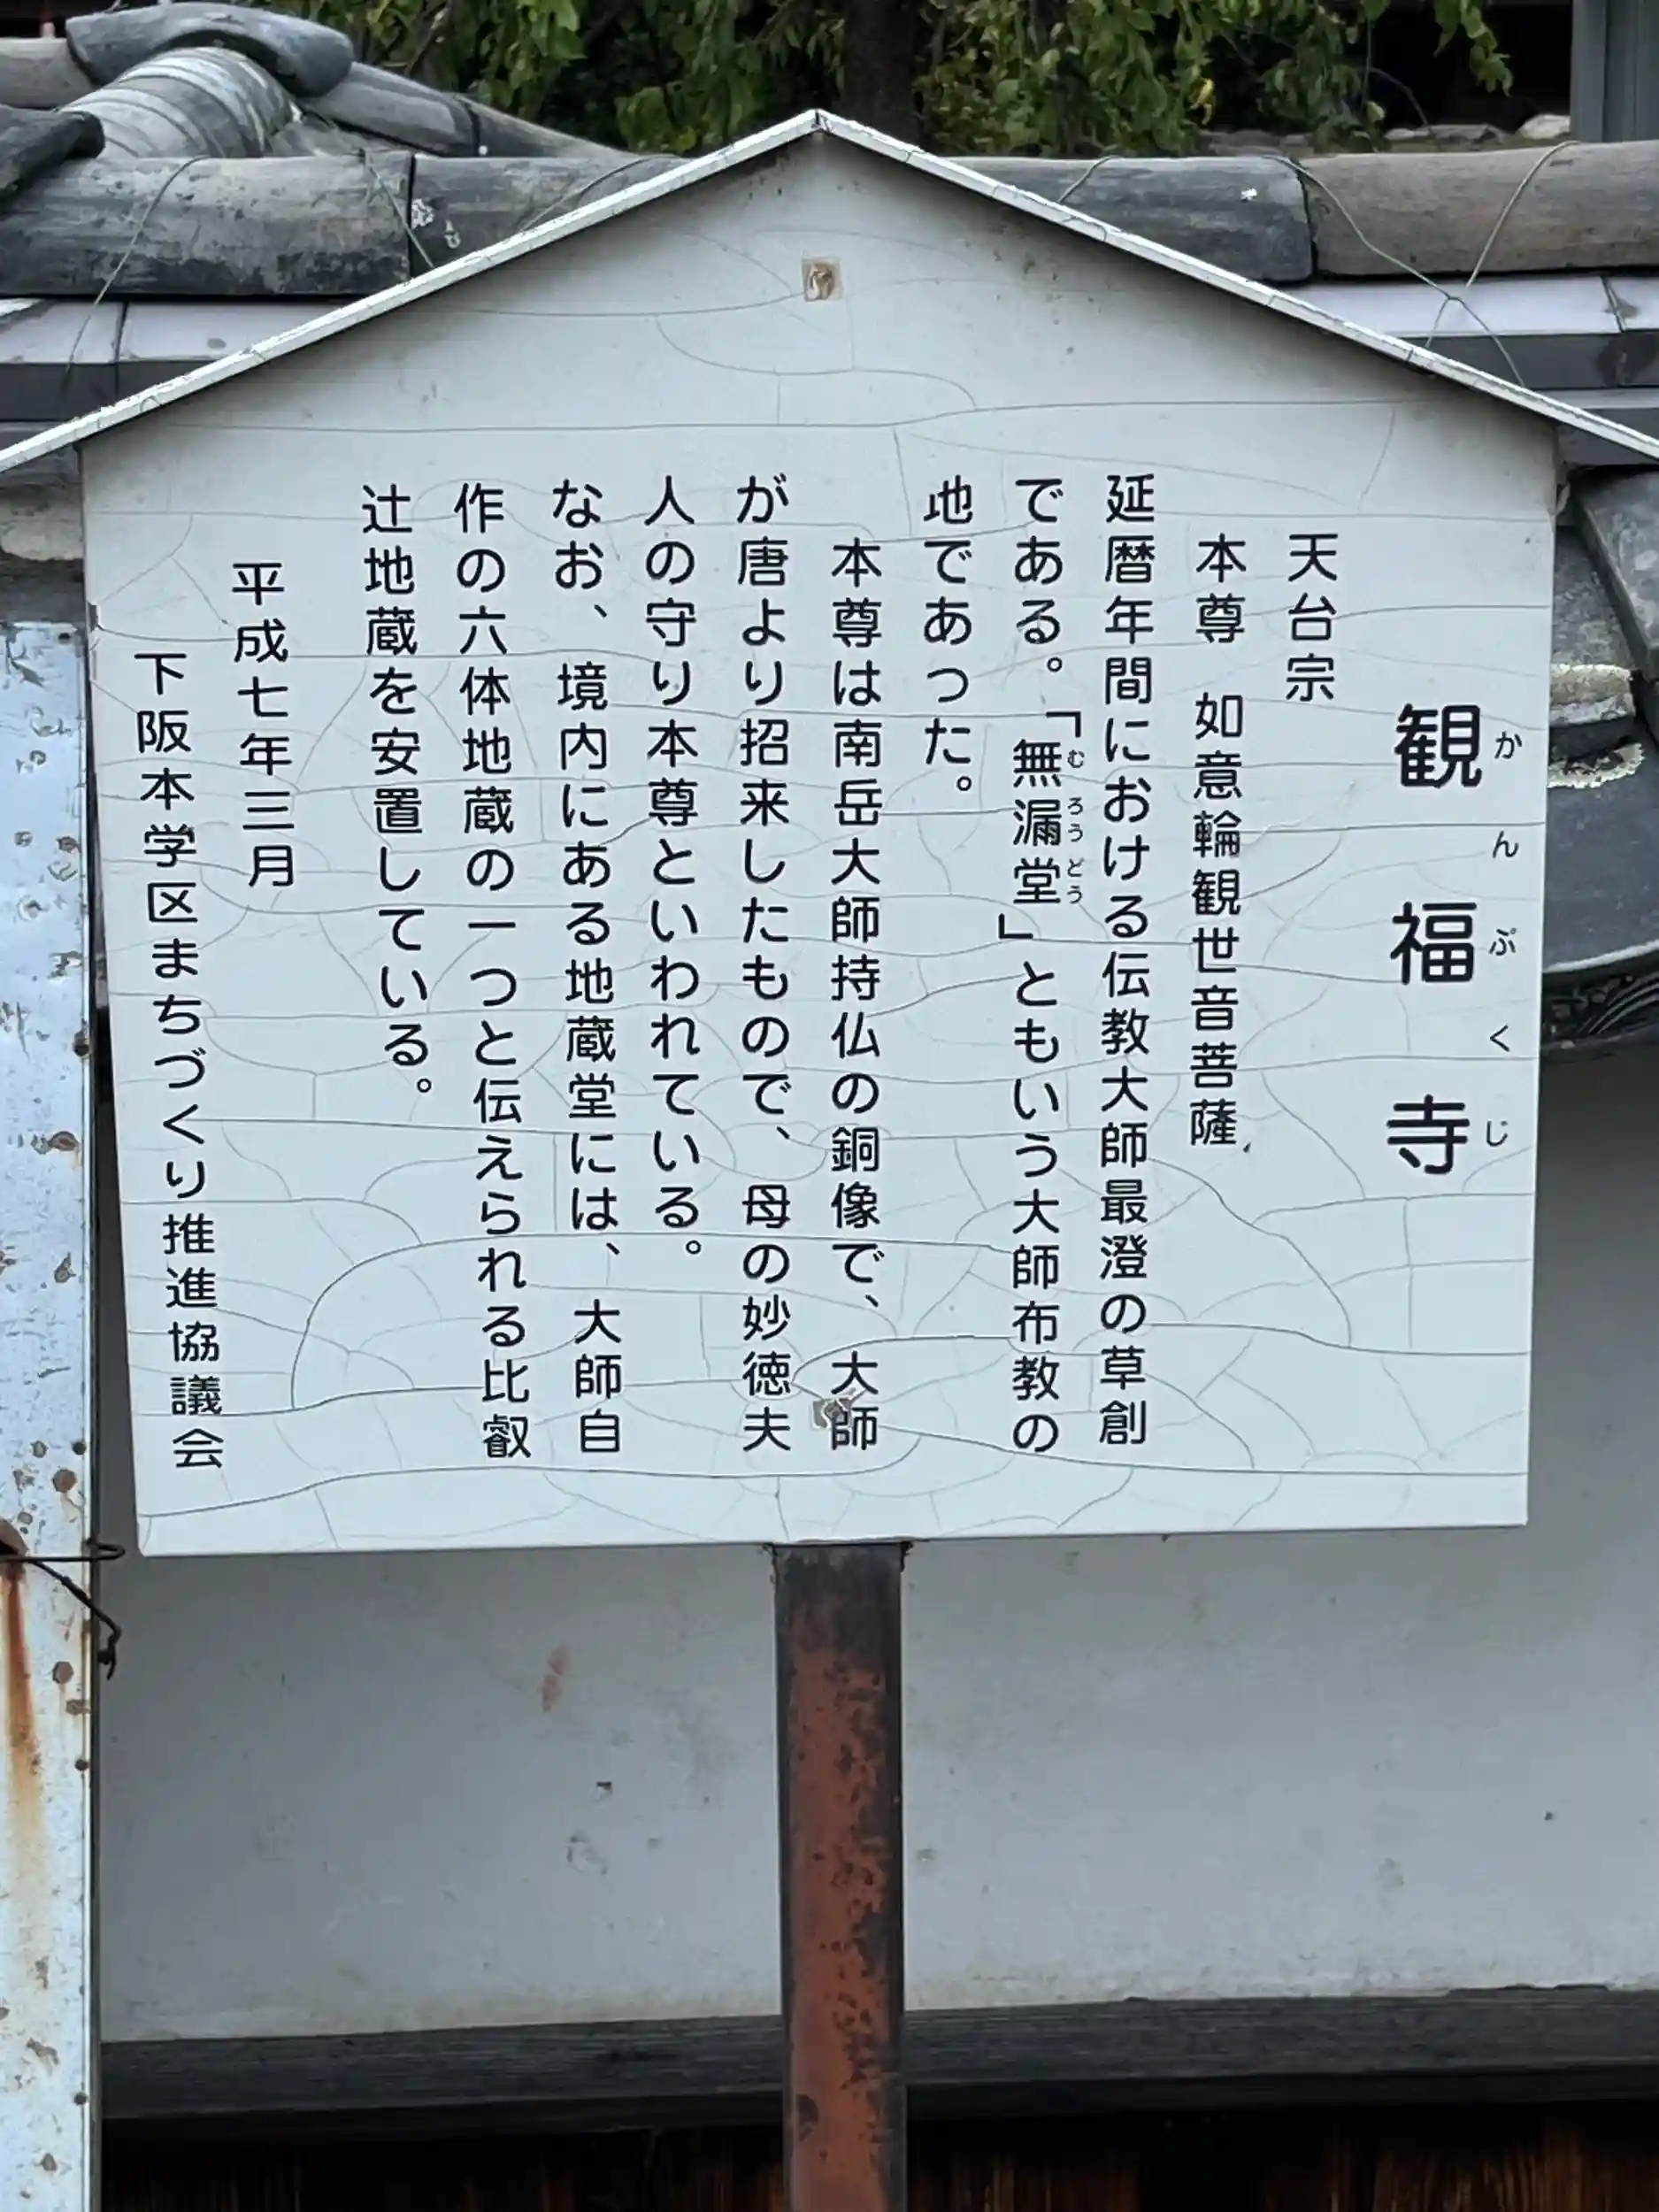 観福寺
かんぷくじ
天台宗
本尊　如意輪観世音菩薩
延暦年間における伝教大師最澄の草創
である。「無漏堂」ともいう大師布教の
むろうどう
地であった。
本尊は南岳大師持仏の銅像で、大師
が唐より招来したもので、母の妙徳夫
人の守り本尊といわれている。
なお、境内にある地蔵堂には、大師自
作の六体地蔵の一つと伝えられる比叡
辻地蔵を安置している。
平成七年三月
下阪本学区まちづくり推進協議会